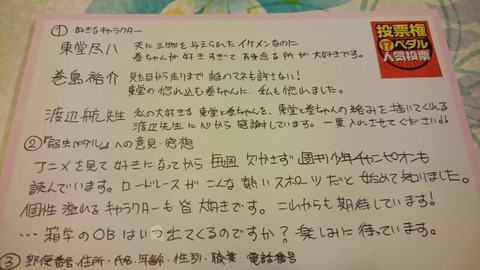 ① 好きなキャラクター
東堂尽八 天に三物を与えられたイケメンなのに
巻ちゃんが好きすぎて お残念な所が大好きです。
巻島裕介 見た目から走りまで 誰のマネも許さない!
東堂の惚れ込む巻ちゃんに、私も惚れました。
渡辺航先生 私の大好きな東堂と巻ちゃんを、東堂と巻ちゃんの絡みを描いてくれる
渡辺先生に心から感謝しています。一票入れさせてください!!
②『弱虫ペダル』への意見・感想
アニメを見て好きになってから 毎週 欠かさず 週刊少年チャンピオンも
読んでいます。ロードレースが こんな熱いスポーツだと 始めて知りました。
個性溢れるキャラクターも皆大好きです。これからも期待しています!
… 箱学のOBはいつ出てくるのですか? 楽しみに待っています。
③ 郵便番号・住所・氏名・年齢・性別・職業・電話番号
投票権
17
ペダル
人気投票